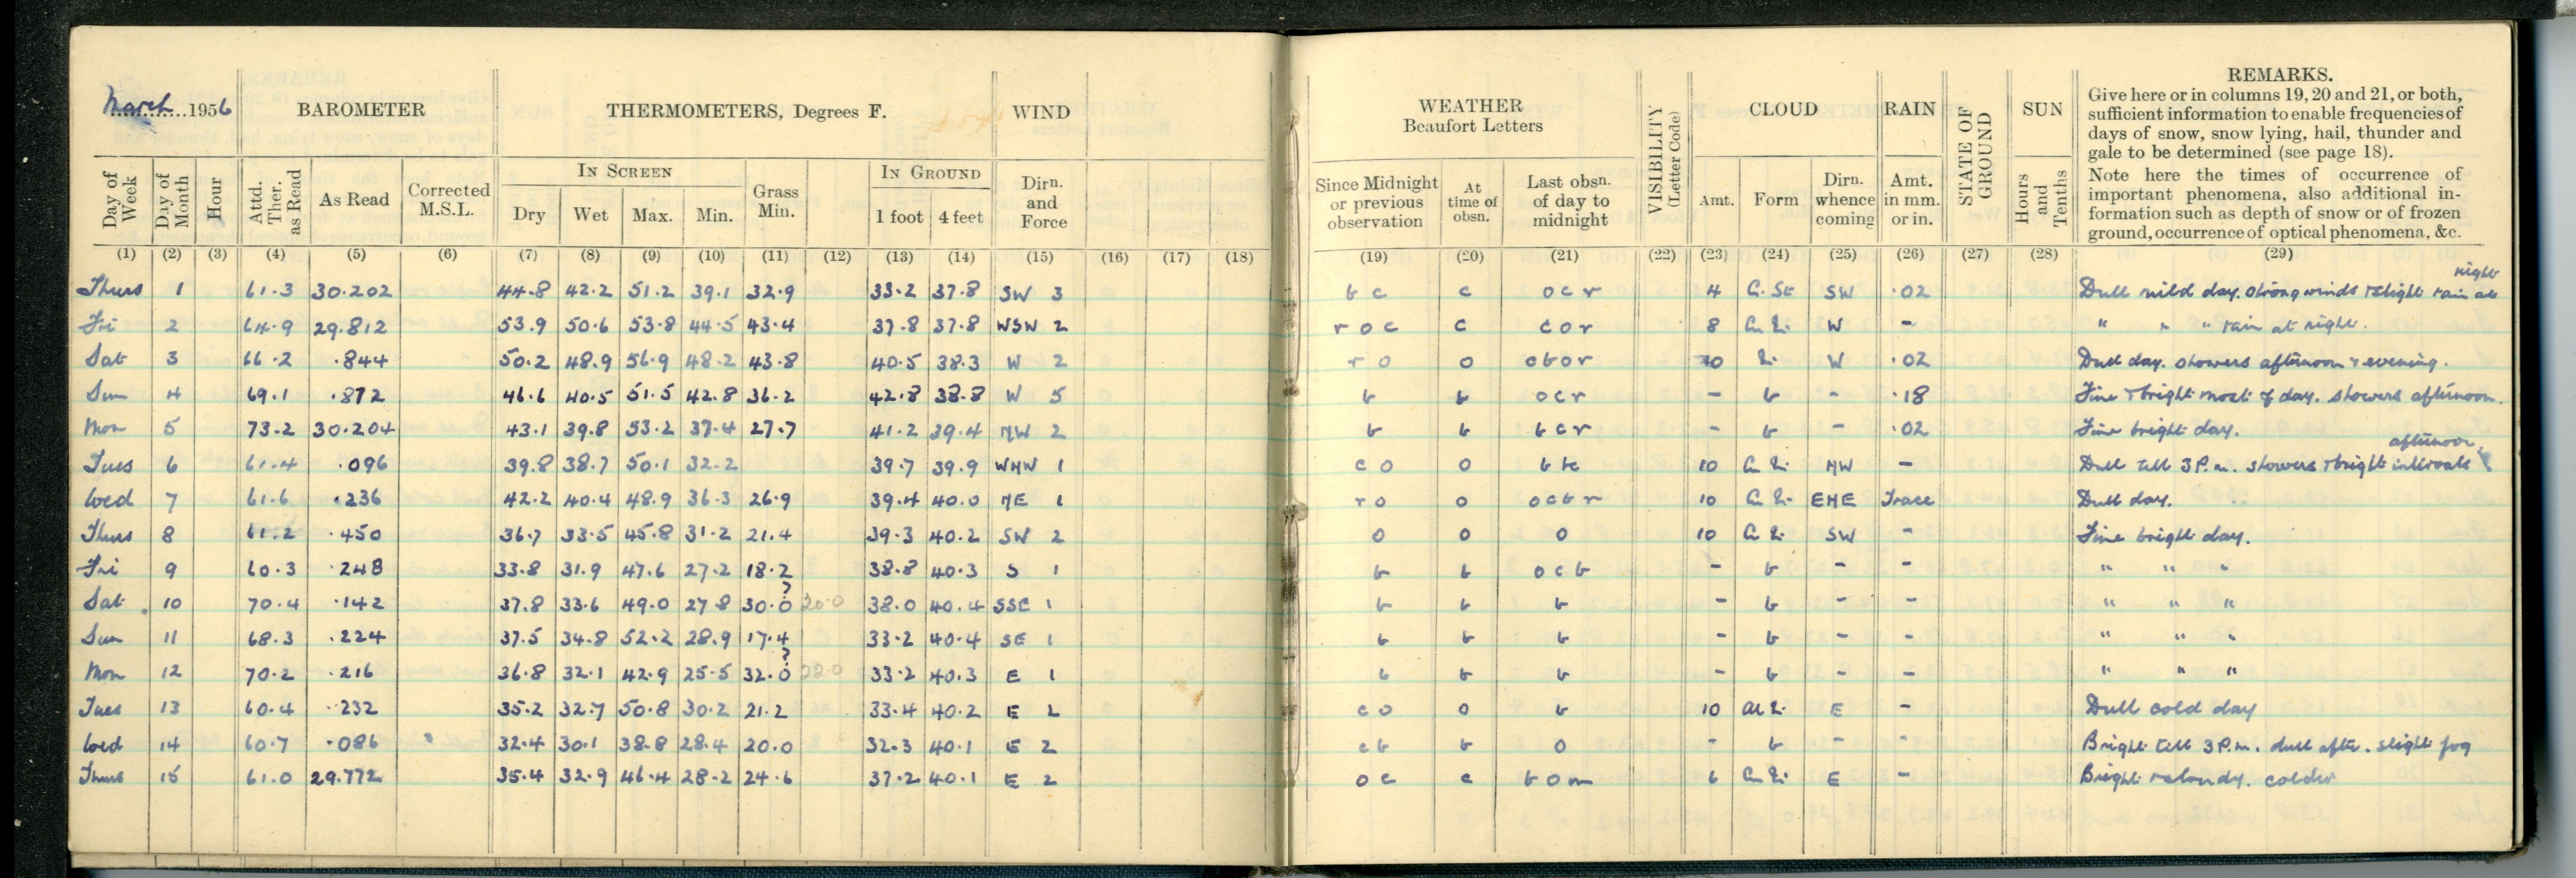 March 1956 BAROMETER THERMOMETERS, Degrees F. WIND WEATHER Beaufort Letters VISIBILITY (Letter Code) CLOUD RAIN STATE OF GROUND SUN REMARKS.
Give here or in columns 19, 20 and 21, or both,
sufficient information to enable frequencies of
days of snow, snow lying, hail, thunder and
gale to be determined (see page 18).
Note here the times of occurrence of
important phenomena, also additional in-
formation such as depth of snow or of frozen
ground, occurrence of optical phenomena, &c.
Day of Week Day of Month Hour Attd. Ther. as Read As Read Corrected M.S.L. IN SCREEN Dry Wet Max. Min. Grass Min. IN GROUND 1 foot 4 feet Dirn. and Force Since Midnight or previous observation At time of obsn. Last obsn. of day to midnight Amt. Form Dirn. whence coming Amt. in mm. or in. Hours and Tenths
(1) (2) (3) (4) (5) (6) (7) (8) (9) (10) (11) (12) (13) (14) (15) (16) (17) (18) (19) (20) (21) (22) (23) (24) (25) (26) (27) (28) (29)
Thurs 1 61.3 30.202 44.8 42.2 51.2 39.1 32.9 33.2 37.8 SW 3 b c c o c r 4 C. St SW .02 Dull mild day. Strong winds & slight rain at night
Fri 2 64.9 29.812 53.9 50.6 53.8 44.5 43.4 37.8 37.8 WSW 2 r o c c c o r 8 W - " " " rain at night.
Sat 3 66.2 .844 50.2 48.9 56.9 48.2 43.8 40.5 38.3 W 2 r o o c b o r 10 W .02 Dull day. Showers afternoon & evening.
Sun 4 69.1 .872 46.6 40.5 51.5 42.8 36.2 42.8 38.8 W 5 b b o c r - b - .18 Fine & bright most of day. Showers afternoon.
Mon 5 73.2 30.204 43.1 39.8 53.2 37.4 27.7 41.2 39.4 NW 2 b b b c r - b - .02 Fine bright day.
Tues 6 61.4 .096 39.8 38.7 50.1 32.2 39.7 39.9 WNW 1 c o o b c 10 NW - Dull till 3 P.m. showers & bright intervals afternoon.
Wed 7 61.6 .236 42.2 40.4 48.9 36.3 26.9 39.4 40.0 NE 1 r o o o c b r 10 ENE Trace Dull day.
Thurs 8 61.2 .450 36.7 33.5 45.8 31.2 21.4 39.3 40.2 SW 2 o o o 10 SW - Fine bright day.
Fri 9 60.3 .248 33.8 31.9 47.6 27.2 18.2 38.8 40.3 S 1 b b o c b - b - - " " "
Sat 10 70.4 .142 37.8 33.6 49.0 27.8 30.0 ? 20.0 38.0 40.4 SSE 1 b b b - b - - " " "
Sun 11 68.3 .224 37.5 34.8 52.2 28.9 17.4 33.2 40.4 SE 1 b b b - b - - " " "
Mon 12 70.2 .216 36.8 32.1 42.9 25.5 32.0 ? 22.0 33.2 40.3 E 1 b b b - b - - " " "
Tues 13 60.4 .232 35.2 32.7 50.8 30.2 21.2 33.4 40.2 E 2 c o o b 10 E - Dull cold day
Wed 14 60.7 .086 32.4 30.1 38.8 28.4 20.0 32.3 40.1 E 2 c b b o - b - - Bright till 3 P.m. dull after. slight fog
Thurs 15 61.0 29.772 35.4 32.9 46.4 28.2 24.6 37.2 40.1 E 2 o c c b o m 6 E - Bright & cloudy. colder